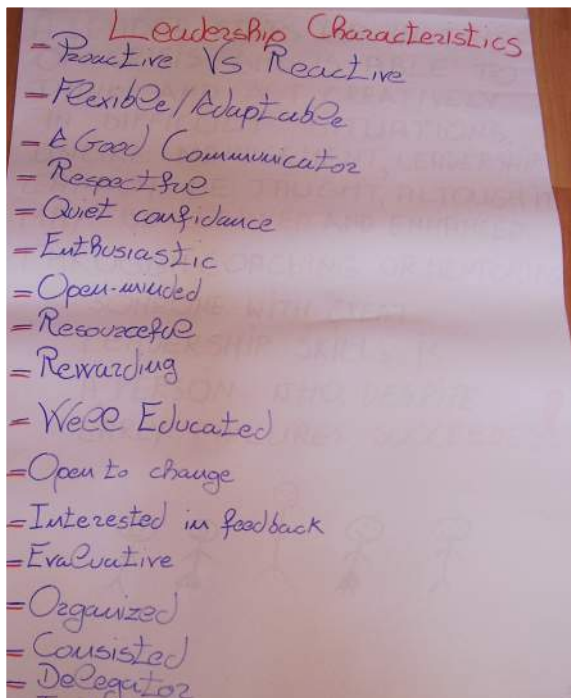 Leadership Characteristics
= Proactive Vs Reactive
= Flexible/Adaptable
= A Good Communicator
= Respectful
= Quiet confidance
= Enthusiastic
= Open-minded
= Resourceful
= Rewarding
= Well Educated
= Open to change
= Interested in feedback
= Evaluative
= Organized
= Consisted
= Delegator